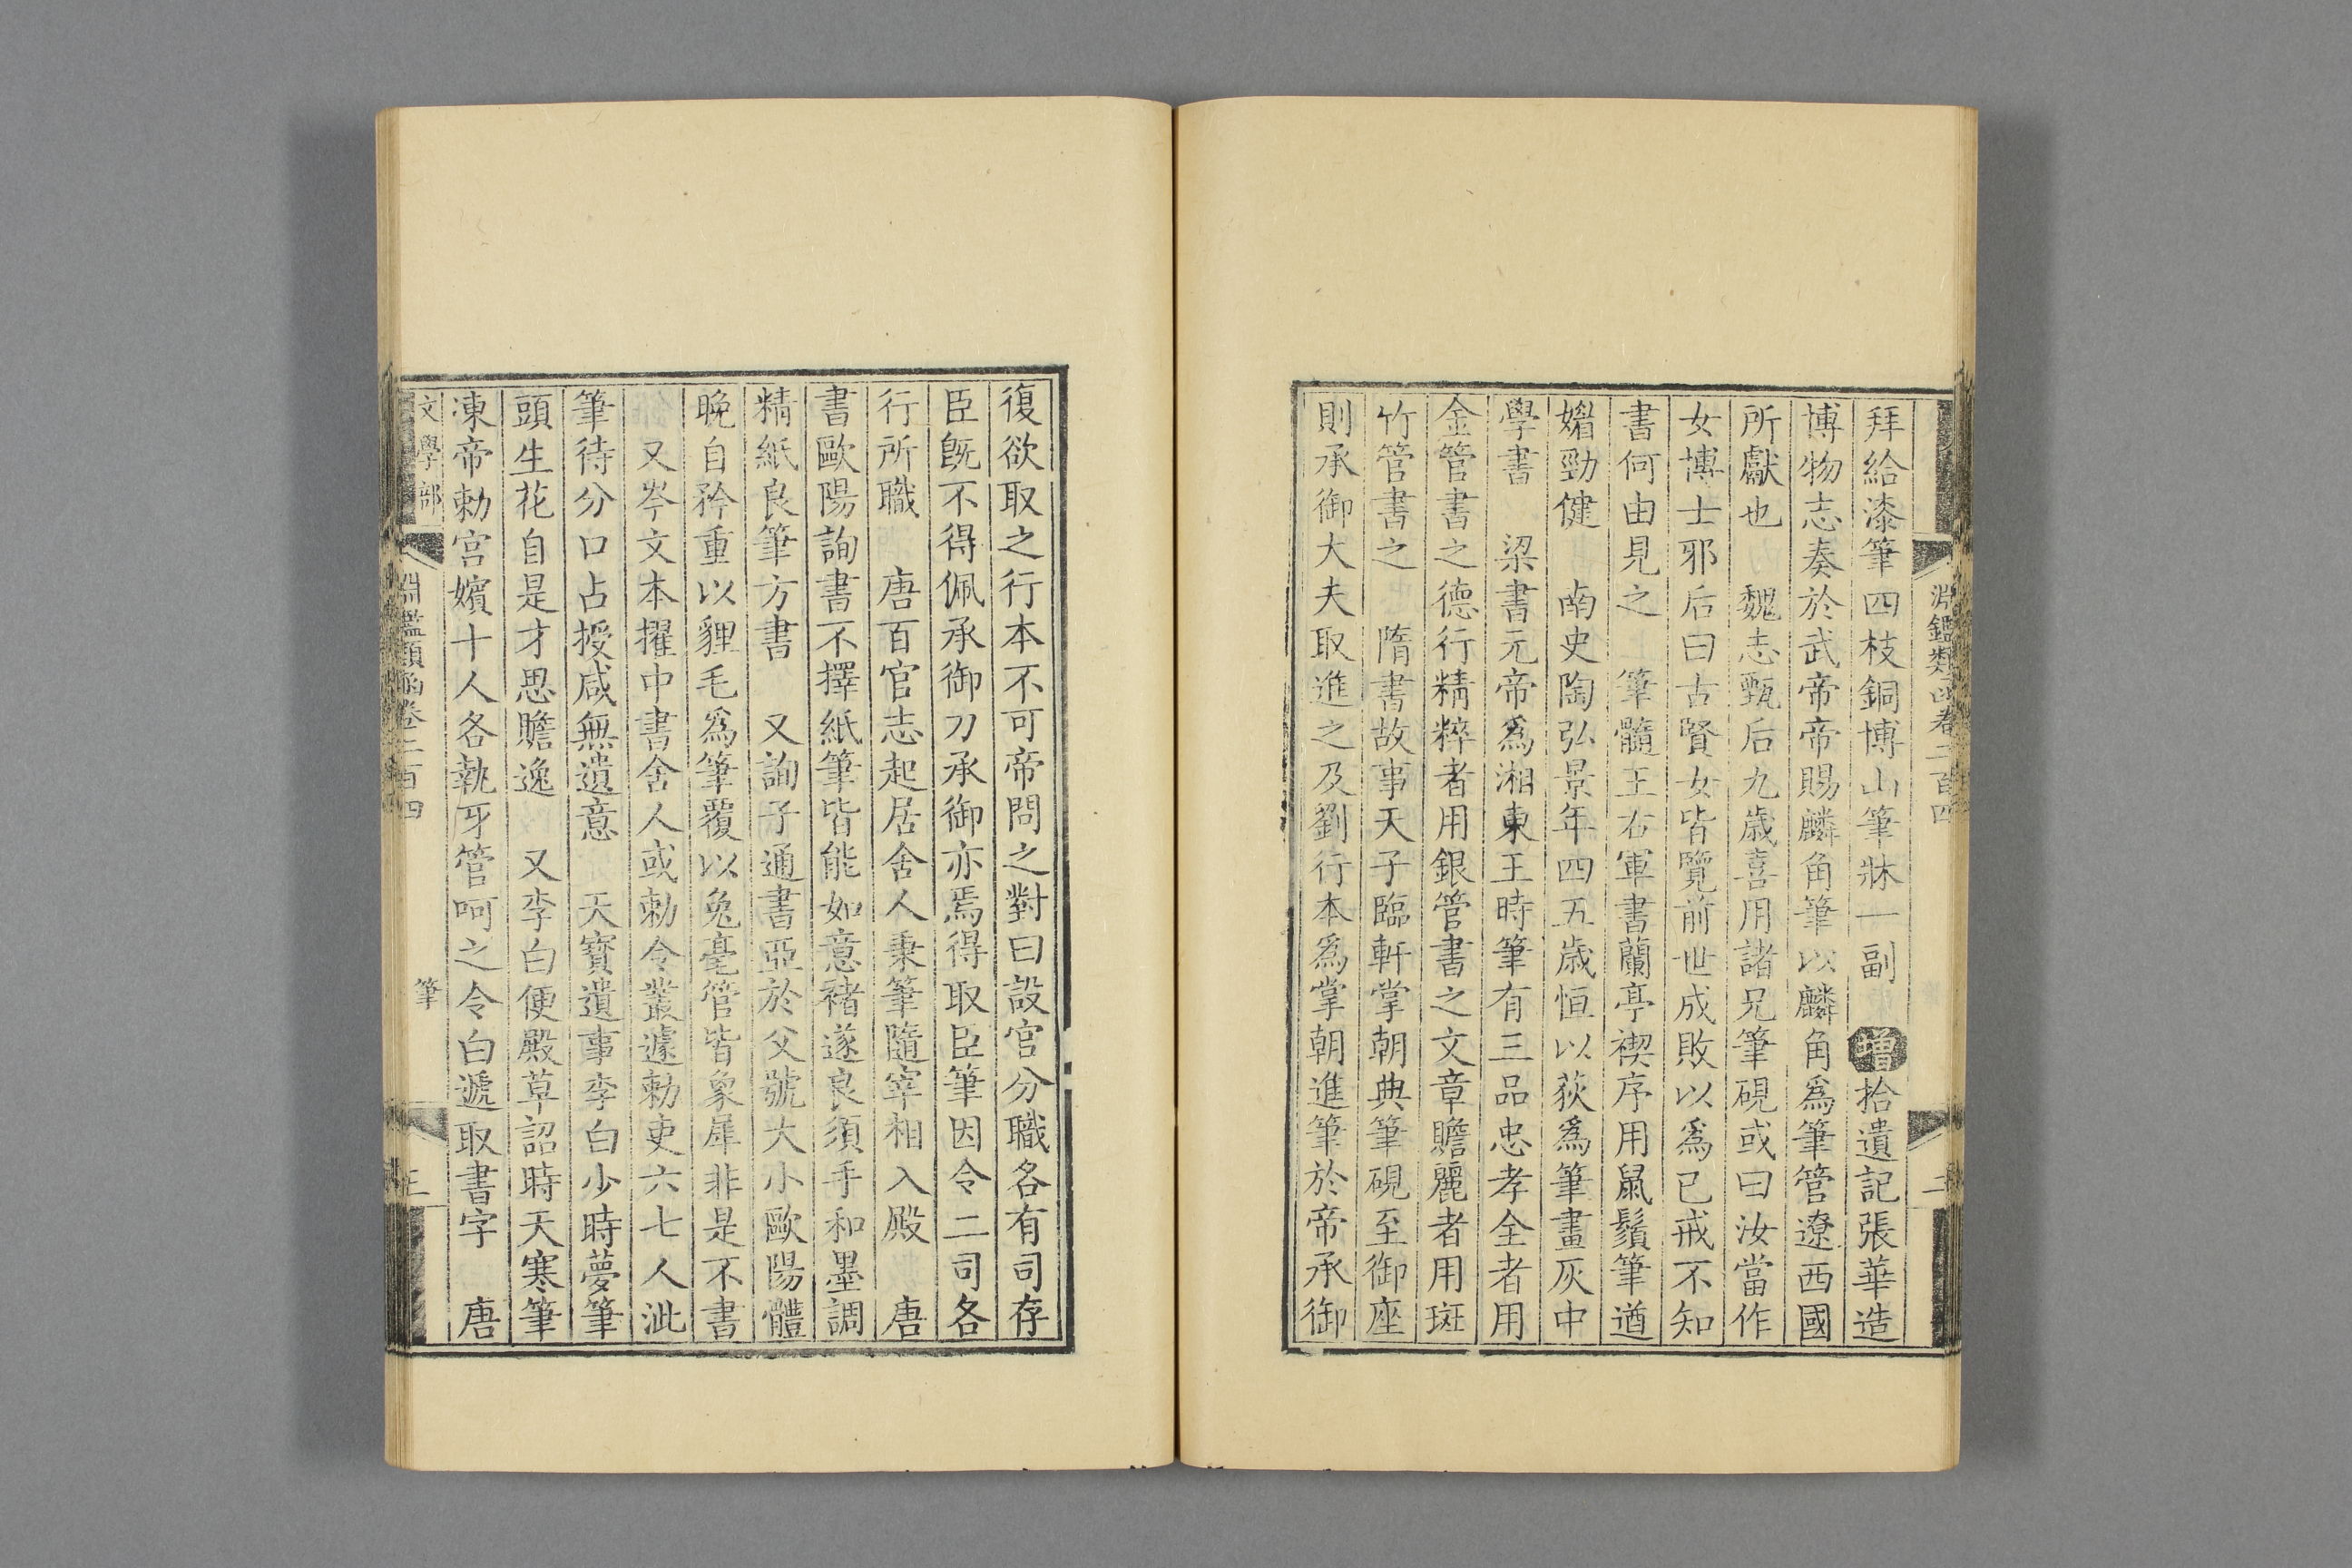 淵鑑類函卷二百四
二
拜給漆筆四枝銅博山筆牀一副 增拾遺記張華造
博物志奏於武帝帝賜麟角筆以麟角爲筆管遼西國
所獻也 魏志甄后九歲喜用諸兄筆硯或曰汝當作
女博士邪后曰古賢女皆覽前世成敗以爲已戒不知
書何由見之 筆髓王右軍書蘭亭禊序用鼠鬚筆遒
媚勁健 南史陶弘景年四五歲恒以荻爲筆畫灰中
學書 梁書元帝爲湘東王時筆有三品忠孝全者用
金管書之德行精粹者用銀管書之文章贍麗者用斑
竹管書之 隋書故事天子臨軒掌朝典筆硯至御座
則承御大夫取進之及劉行本爲掌朝進筆於帝承御
復欲取之行本不可帝問之對曰設官分職各有司存
臣旣不得佩承御刀承御亦焉得取臣筆因令二司各
行所職 唐百官志起居舍人秉筆隨宰相入殿 唐
書歐陽詢書不擇紙筆皆能如意褚遂良須手和墨調
精紙良筆方書 又詢子通書亞於父號大小歐陽體
晚自矜重以貍毛爲筆覆以兔毫管皆象犀非是不書
又岑文本擢中書舍人或勅令叢遽勅吏六七人泚
筆待分口占授咸無遺意 天寶遺事李白少時夢筆
頭生花自是才思贍逸 又李白便殿草詔時天寒筆
凍帝勅宫嬪十人各執牙管呵之令白遞取書字 唐
文學部
淵鑑類函卷二百四
筆
三